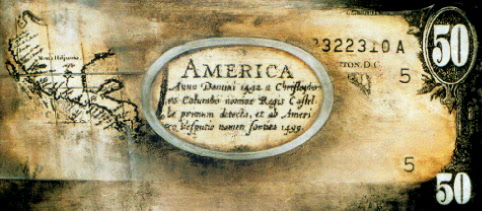 Nova Hispania
AMERICA
Anno Domini 1492 a Christopho
ro Columbo nomine Regis Castel
le primum detecta, et ab Ameri
co Vesputio nomen sortita 1499.
2322310 A
TON, D.C.
5
5
50
50